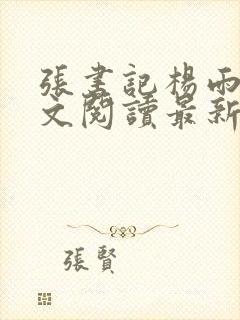 張書記楊雨
文閱讀最新
張賢